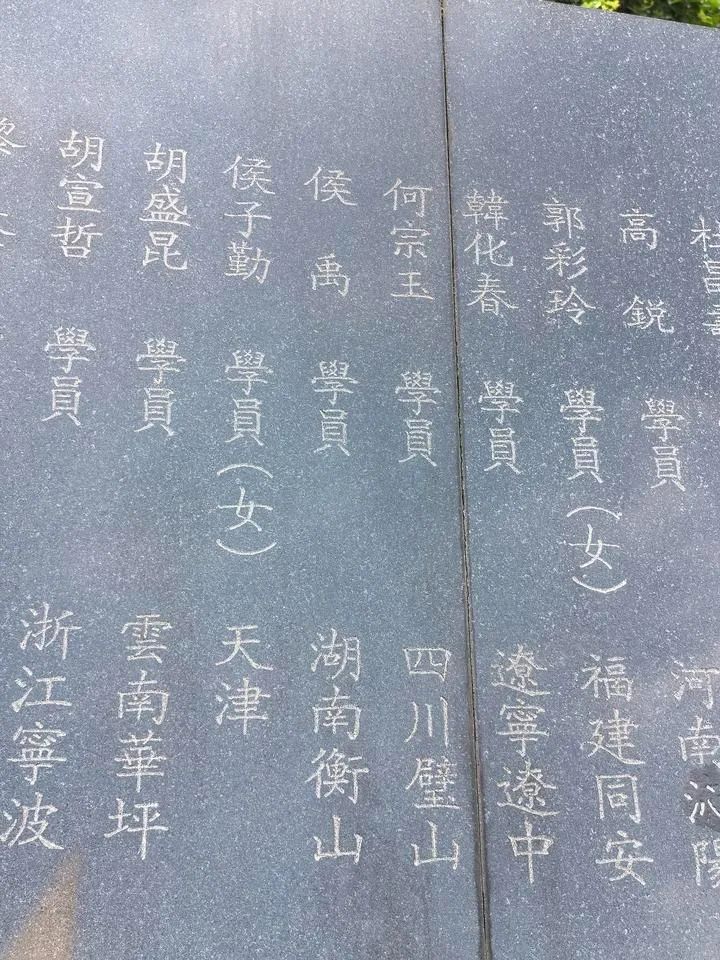 杜昌
高鋭 學員 河南 陽
郭彩玲 學員（女） 福建同安
韓化春 學員 遼寧遼中
何宗玉 學員 四川璧山
侯禹 學員 湖南衡山
侯子勤 學員（女） 天津
胡盛昆 學員 雲南華坪
胡宣哲 學員 浙江寧波
黎